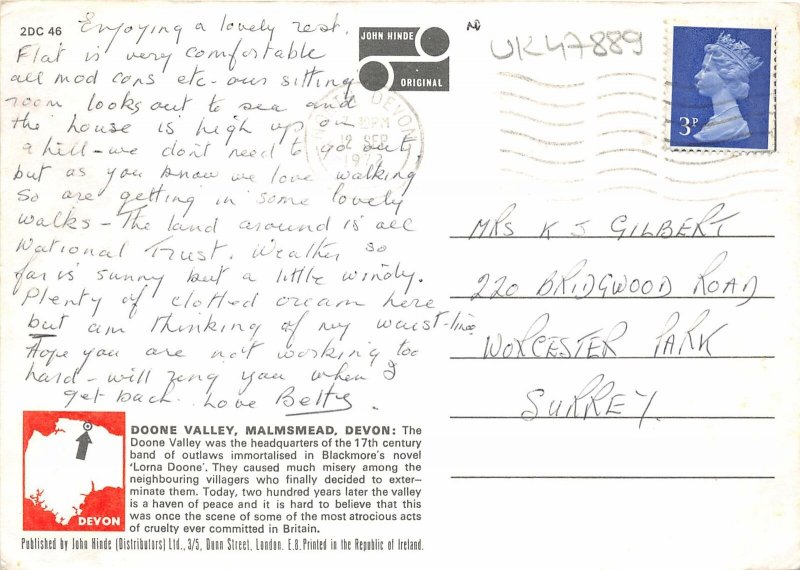 2DC 46
Enjoying a lovely rest.
Flat is very comfortable
all mod cons etc - our sitting
room looks out to sea and
the house is high up on
a hill - we don't need to go out,
but as you know we love walking
So are getting in some lovely
walks - The land around is all
National Trust. Weather so
far is sunny but a little windy.
Plenty of clotted cream here
but am thinking of my waist-line
Hope you are not working too
hard - will ring you when I
get back. Love Betty.
JOHN HINDE
ORIGINAL
UK47889
DEVON
12 SEP
3P
MRS K J GILBERT
220 BRIDGWOOD ROAD
WORCESTER PARK
SURREY
DEVON
DOONE VALLEY, MALMSMEAD, DEVON: The
Doone Valley was the headquarters of the 17th century
band of outlaws immortalised in Blackmore's novel
'Lorna Doone'. They caused much misery among the
neighbouring villagers who finally decided to exter-
minate them. Today, two hundred years later the valley
is a haven of peace and it is hard to believe that this
was once the scene of some of the most atrocious acts
of cruelty ever committed in Britain.
Published by John Hinde (Distributors) Ltd., 3/5, Dunn Street, London. E.8. Printed in the Republic of Ireland.